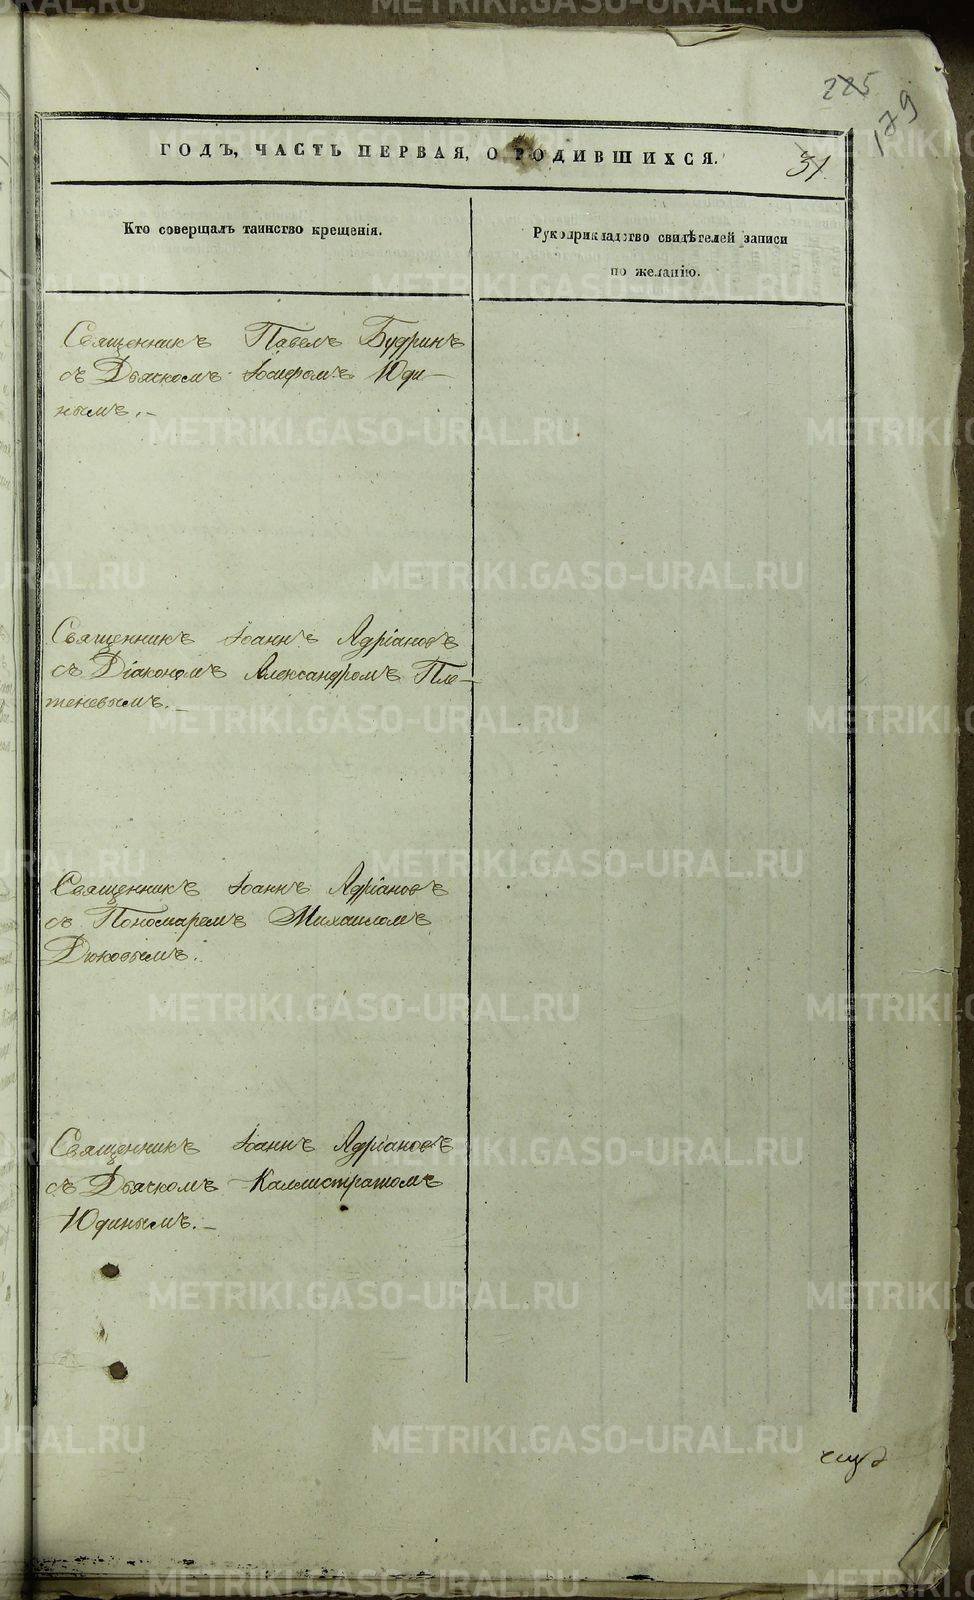 225
179
ГОДЪ, ЧАСТЬ ПЕРВАЯ, О РОДИВШИХСЯ.
31
Кто совершалъ таинство крещенія.
Рукоприкладство свидѣтелей записи
по желанію.
Священникъ Павелъ Будринъ
съ Дьячкомъ Іосифомъ Юди-
нымъ.-
Священникъ Іоаннъ Адріановъ
съ Діакономъ Александромъ Пле-
теневымъ.-
Священникъ Іоаннъ Адріановъ
съ Пономаремъ Михаиломъ
Дюковымъ.
Священникъ Іоаннъ Адріановъ
съ Дьячкомъ Каллистратомъ
Юдинымъ.-
METRIKI.GASO-URAL.RU